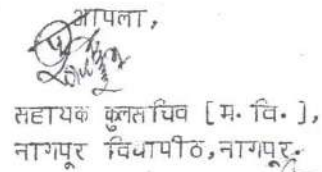 आपला,
सहायक कुलसचिव [म. वि. ],
नागपूर विद्यापीठ,नागपूर.